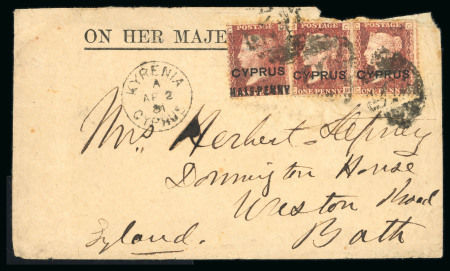 ON HER MAJE
POSTAGE POSTAGE POSTAGE
CYPRUS CYPRUS CYPRUS
HALF-PENNY ONE PENNY ONE PENNY
KYRENIA
A
AP 2
81
CYPRUS
Mrs Herbert
Donnington House
Weston Road
Bath